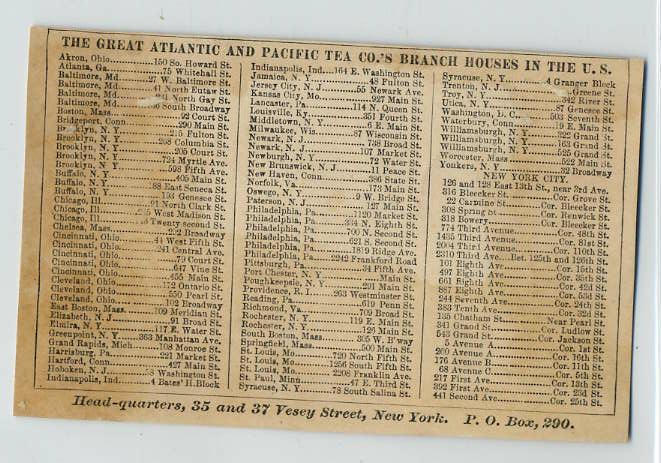 THE GREAT ATLANTIC AND PACIFIC TEA CO.'S BRANCH HOUSES IN THE U. S.
Akron, Ohio 150 So. Howard St.
Atlanta, Ga. 75 Whitehall St.
Baltimore, Md. 27 W. Baltimore St.
Baltimore, Md. 41 North Eutaw St.
Baltimore, Md. North Gay St.
Baltimore, Md. South Broadway
Boston, Mass. 92 Court St.
Bridgeport, Conn. 290 Main St.
Brooklyn, N. Y. 215 Fulton St.
Brooklyn, N. Y. 268 Columbia St.
Brooklyn, N. Y. 205 Court St.
Brooklyn, N. Y. 724 Myrtle Ave.
Brooklyn, N. Y. 598 Fifth Ave.
Buffalo, N. Y. 405 Main St.
Buffalo, N. Y. 88 East Seneca St.
Buffalo, N. Y. 193 Genesee St.
Chicago, Ill. 91 North Clark St.
Chicago, Ill. West Madison St.
Chicago, Ill. Twenty second St.
Chelsea, Mass. 202 Broadway
Cincinnati, Ohio 44 West Fifth St.
Cincinnati, Ohio 241 Central Ave.
Cincinnati, Ohio 79 Court St.
Cincinnati, Ohio 647 Vine St.
Cleveland, Ohio 455 Main St.
Cleveland, Ohio 172 Ontario St.
Cleveland, Ohio 550 Pearl St.
Cleveland, Ohio 102 Broadway
East Boston, Mass. 109 Meridian St.
Elizabeth, N. J. 91 Broad St.
Elmira, N. Y. 117 E. Water St.
Greenpoint, N. Y. 363 Manhattan Ave.
Grand Rapids, Mich. 103 Monroe St.
Harrisburg, Pa. 221 Market St.
Hartford, Conn. 427 Main St.
Hoboken, N. J. 58 Washington St.
Indianapolis, Ind. 4 Bates' H. Block
Indianapolis, Ind. 164 E. Washington St.
Jamaica, N. Y. 48 Fulton St.
Jersey City, N. J. 55 Newark Ave.
Kansas City, Mo. 927 Main St.
Lancaster, Pa. 114 N. Queen St.
Louisville, Ky. 351 Fourth St.
Middletown, N. Y. 6 E. Main St.
Milwaukee, Wis. 87 Wisconsin St.
Newark, N. J. 738 Broad St.
Newark, N. J. 107 Market St.
Newburgh, N. Y. 72 Water St.
New Brunswick, N. J. 11 Peace St.
New Haven, Conn. 386 State St.
Norfolk, Va. 173 Main St.
Oswego, N. Y. 9 W. Bridge St.
Paterson, N. J. 127 Main St.
Philadelphia, Pa. 1120 Market St.
Philadelphia, Pa. 334 N. Eighth St.
Philadelphia, Pa. 700 N. Second St.
Philadelphia, Pa. 621 S. Second St.
Philadelphia, Pa. 1819 Ridge Ave.
Philadelphia, Pa. 2242 Frankford Road
Pittsburgh, Pa. 34 Fifth Ave.
Port Chester, N. Y. Main St.
Poughkeepsie, N. Y. 291 Main St.
Providence, R. I. 263 Westminster St.
Reading, Pa. 619 Penn St.
Richmond, Va. 709 Broad St.
Rochester, N. Y. 119 E. Main St.
Rochester, N. Y. 126 Main St.
South Boston, Mass. 305 W. B'way
Springfield, Mass. 500 Main St.
St. Louis, Mo. 720 North Fifth St.
St. Louis, Mo. 1256 South Fifth St.
St. Louis, Mo. 2208 Franklin Ave.
St. Paul, Minn. 47 E. Third St.
Syracuse, N. Y. 78 South Salina St.
Syracuse, N. Y. 4 Granger Block
Trenton, N. J. Greene St.
Troy, N. Y. 342 River St.
Utica, N. Y. 87 Genesee St.
Washington, D. C. 503 Seventh St.
Waterbury, Conn. 19 E. Main St.
Williamsburgh, N. Y. 322 Grand St.
Williamsburgh, N. Y. 163 Grand St.
Williamsburgh, N. Y. 525 Grand St.
Worcester, Mass. 522 Main St.
Yonkers, N. Y. 32 Broadway
NEW YORK CITY.
126 and 128 East 13th St., near 3rd Ave.
316 Bleecker St. Cor. Grove St.
22 Carmine St. Cor. Bleecker St.
308 Spring St. Cor. Renwick St.
318 Bowery Cor. Bleecker St.
774 Third Avenue Cor. 48th St.
1435 Third Avenue Cor. 81st St.
2004 Third Avenue Cor. 110th St.
2310 Third Ave. Bet. 125th and 126th St.
101 Eighth Ave. Cor. 15th St.
497 Eighth Ave. Cor. 35th St.
661 Eighth Ave. Cor. 42d St.
881 Eighth Ave. Cor. 53d St.
244 Seventh Ave. Cor. 24th St.
383 Tenth Ave. Cor. 32d St.
135 Chatham St. Near Pearl St.
341 Grand St. Cor. Ludlow St.
533 Grand St. Cor. Jackson St.
5 Avenue A Cor. 1st St.
260 Avenue A Cor. 16th St.
176 Avenue B Cor. 11th St.
68 Avenue C Cor. 5th St.
217 First Ave. Cor. 13th St.
392 First Ave. Cor. 23d St.
441 Second Ave. Cor. 25th St.
Head-quarters, 35 and 37 Vesey Street, New York. P. O. Box, 290.